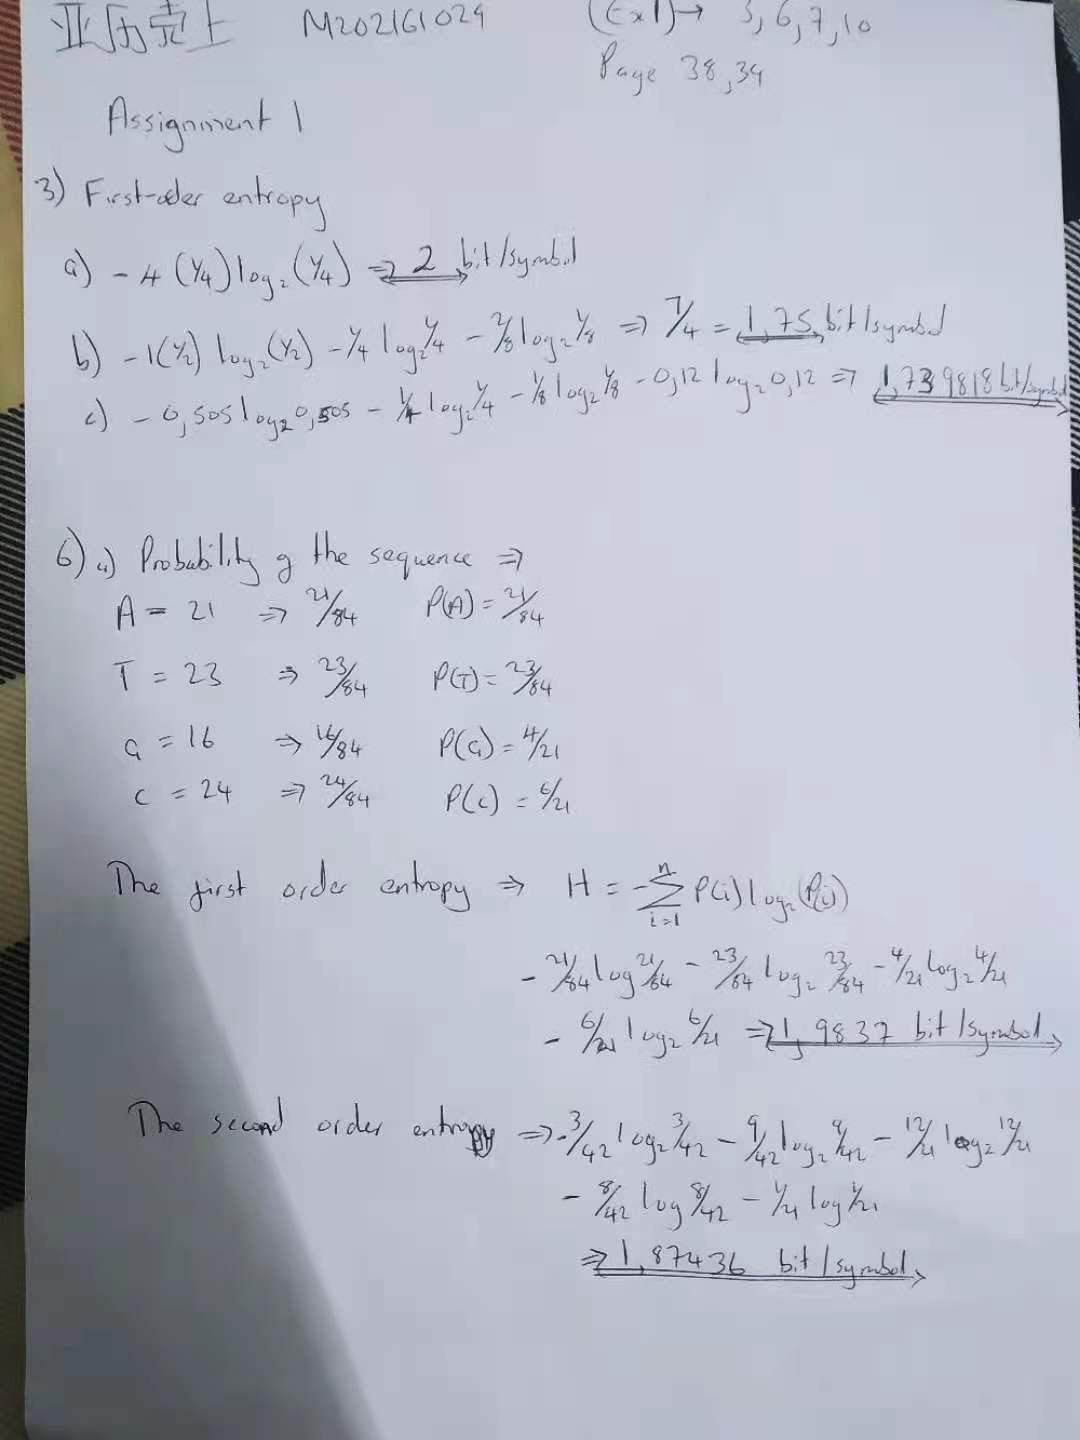 亚历克上 M202161029 (Ex1)→ 3,6,7,10
Page 38,39
Assignment 1
3) First-order entropy
a) - 4 (1/4) log₂ (1/4) ⇒ 2 bit/symbol
b) - 1(1/2) log₂ (1/2) - 1/4 log₂ 1/4 - 2/8 log₂ 1/8 ⇒ 7/4 = 1,75 bit/symbol
c) - 0,505 log₂ 0,505 - 1/4 log₂ 1/4 - 1/8 log₂ 1/8 - 0,12 log₂ 0,12 ⇒ 1,739818 bit/symbol
6) a) Probability of the sequence ⇒
A = 21 ⇒ 21/84 P(A) = 21/84
T = 23 ⇒ 23/84 P(T) = 23/84
G = 16 ⇒ 16/84 P(G) = 4/21
C = 24 ⇒ 24/84 P(C) = 6/21
The first order entropy ⇒ H = -∑ⁿᵢ₌₁ P(i) log₂ (P(i))
- 21/84 log 21/84 - 23/84 log₂ 23/84 - 4/21 log₂ 4/21
- 6/21 log₂ 6/21 ⇒ 1,9837 bit/symbol
The second order entropy ⇒ - 3/42 log₂ 3/42 - 9/42 log₂ 9/42 - 12/21 log₂ 12/21
- 8/42 log 8/42 - 1/21 log 1/21
⇒ 1,87436 bit/symbol